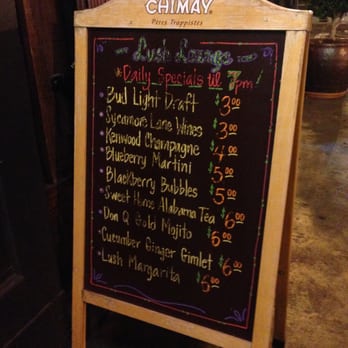 CHIMAY
Peres Trappistes
Lush Lounge
*Daily Specials til 7pm!
* Bud Light Draft $3.00
* Sycamore Lane Wines $3.00
* Kenwood Champagne $4.00
* Blueberry Martini $5.00
* BlackBerry Bubbles $5.00
* Sweet Home Alabama Tea $6.00
* Don Q Gold Mojito $6.00
* Cucumber Ginger Gimlet $6.00
* Lush Margarita $5.00